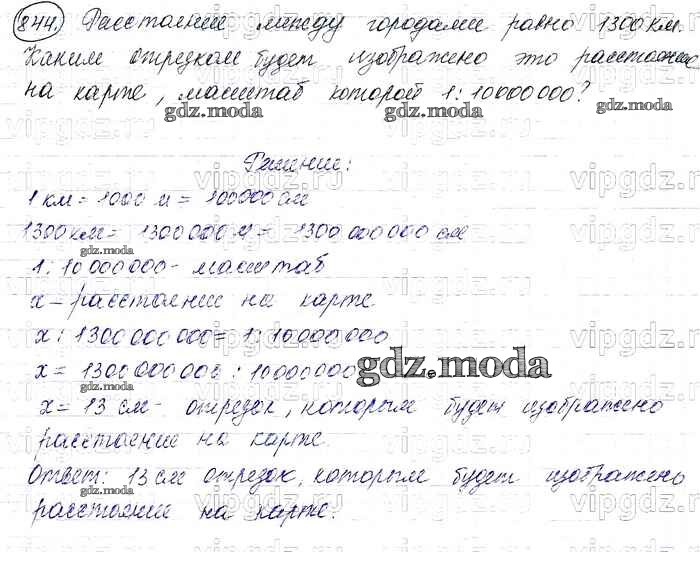 844. Расстояние между городами равно 1300 км.
Каким отрезком будет изображено это расстояние
на карте, масштаб которой 1:10000000?
gdz.moda
gdz.moda
Решение:
1 км = 1000 м = 100000 см
1300 км = 1300 000 м = 1300 000 000 см
gdz.moda
1:10 000000 - масштаб
x - расстояние на карте.
x : 1300 000 000 = 1:10000000
x = 1300 000 000 : 10000000
gdz.moda
x = 13 см - отрезок, которым будет изображено
расстояние на карте.
Ответ: 13 см отрезок, которым будет изображено
gdz.moda
расстояние на карте.
vipgdz.ru